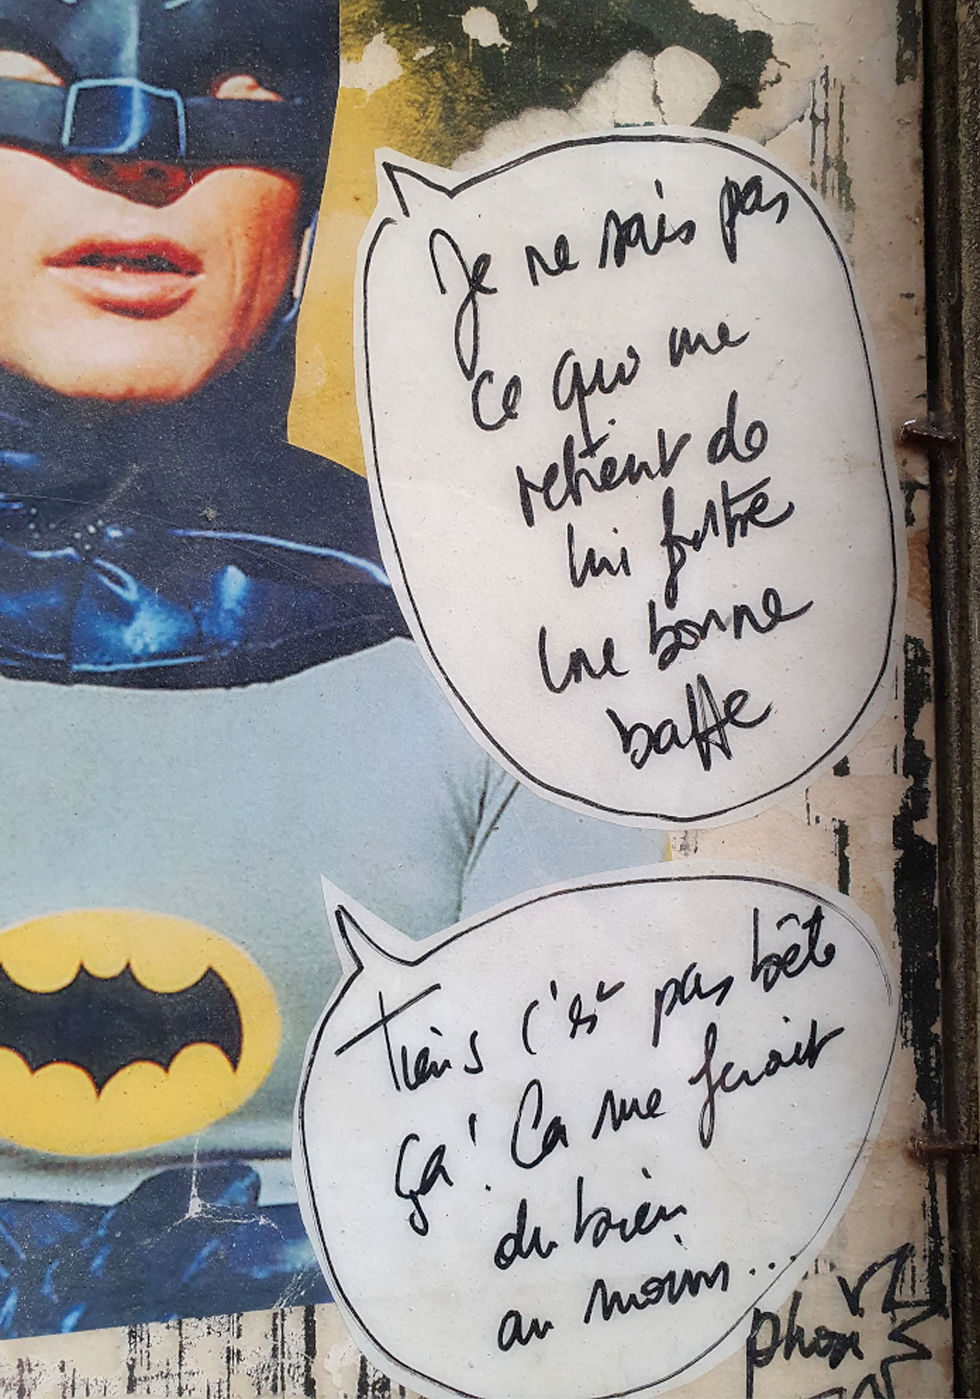 Je ne sais pas
ce qui me
retient de
lui foutre
une bonne
baffe
Tiens c'est pas bête
ça! Ca me ferait
du bien
au moins...